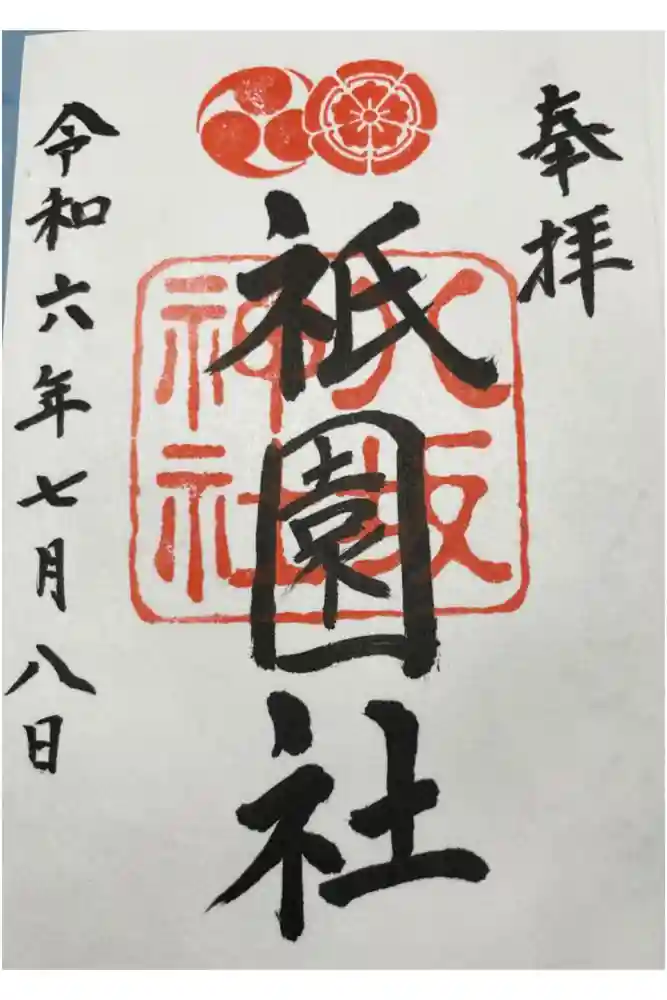 奉拝
祇園社
八坂神社
令和六年七月八日